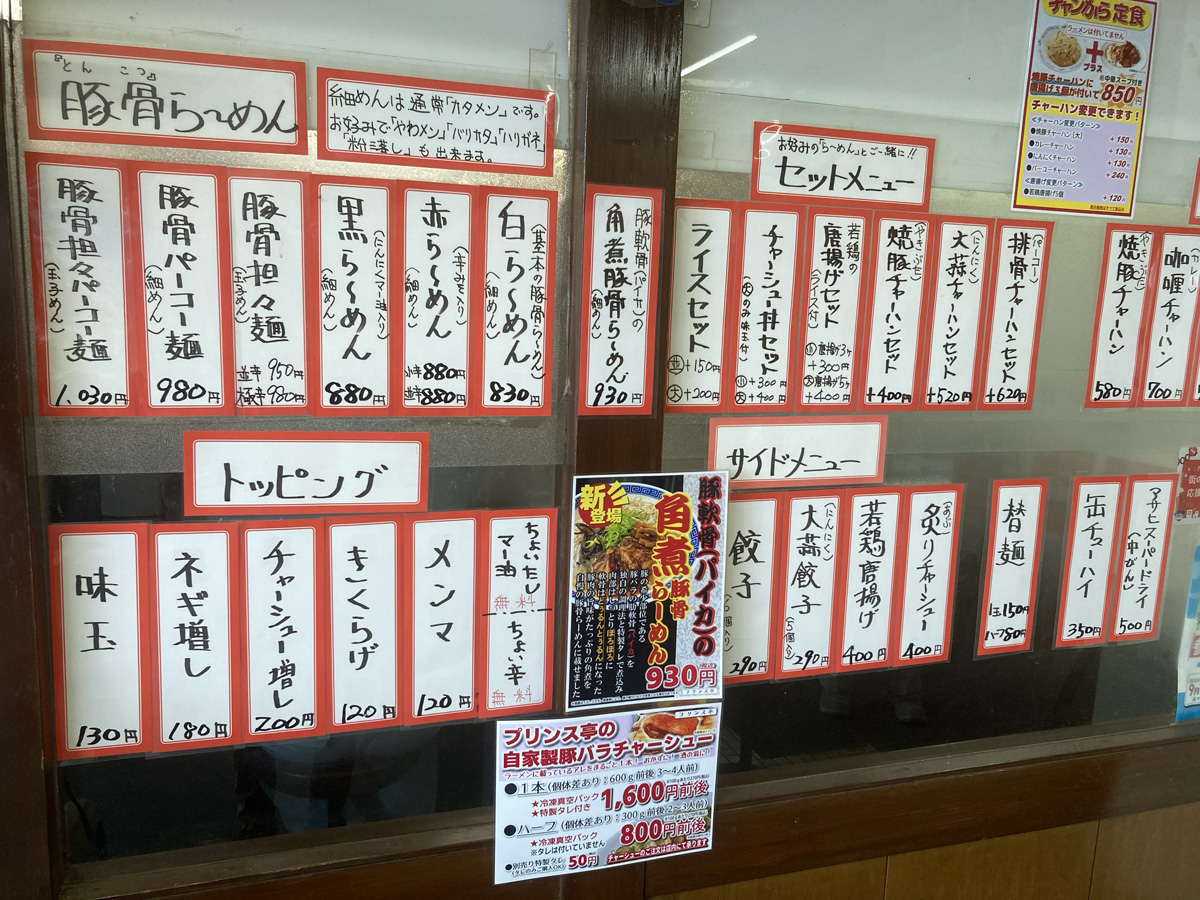 『とん こつ』
豚骨ら〜めん
細めんは通常「カタメン」です。
お好みで「やわメン」「バリカタ」「ハリガネ」
「粉落し」も出来ます。
豚骨担々パーコー麺
(玉子めん)
1.030円
豚骨パーコー麺
(細めん)
980円
豚骨担々麺
(玉子めん)
並辛 950円
極辛 980円
黒ら〜めん
(にんにくマー油入り)
(細めん)
880円
赤ら〜めん
(辛みそ入り)
(細めん)
小辛880円
並辛880円
白ら〜めん
(基本の豚骨ら〜めん)
(細めん)
830円
豚軟骨(パイカ)の
角煮豚骨ら〜めん
(細めん)
930円
お好みの「ら〜めん」とご一緒に!!
セットメニュー
ライスセット
並+150円
大+200円
チャーシュー丼セット
(大のみ味玉付)
小+300円
大+400円
若鶏の
唐揚げセット
(ライス付)
小唐揚げ3ケ
+300円
大唐揚げ5ケ
+400円
(やきぶた)
焼豚チャーハンセット
+400円
(にんにく)
大蒜チャーハンセット
+520円
(パーコー)
排骨チャーハンセット
+620円
(やきぶた)
焼豚チャーハン
580円
(カレー)
咖喱チャーハン
700円
チャンから定食
ラーメンは付いてません
+
プラス
焼豚チャーハンに
唐揚げ3個が付いて
※中華スープ付き
850円
チャーハン変更できます!
<チャーハン変更パターン>
●焼豚チャーハン[大] +150円
●カレーチャーハン +130円
●にんにくチャーハン +130円
●パーコーチャーハン +240円
<唐揚げ変更パターン>
●若鶏唐揚げ5個 +120円
トッピング
味玉
130円
ネギ増し
180円
チャーシュー増し
200円
きくらげ
120円
メンマ
120円
ちょいたし
マー油
無料
ちょい辛
無料
サイドメニュー
餃子
290円
(にんにく)
大蒜餃子
(5個入り)
290円
若鶏唐揚げ
400円
(あぶ)
炙りチャーシュー
400円
替麺
1玉150円
ハーフ80円
缶チューハイ
350円
アサヒスーパードライ
(中びん)
500円
新登場
豚軟骨(パイカ)の
角煮豚骨
らーめん
豚の希少部位である
豚バラの肋軟骨(パイカ)を
独自の調理法と特製タレで煮込み
肉部はしっとりほろほろに
軟骨はとぅるんとぅるんになった
豚肉の旨味がたっぷりの角煮を
自慢の豚骨らーめんに載せました
930円
(税込)
プリンス亭
プリンス亭
プリンス亭の
自家製豚バラチャーシュー
ラーメンに載っているアレをまるごと1本!おかずに!酒の肴に!
●1本(個体差あり 600g前後 3〜4人前)
★冷凍真空パック
★特製タレ付き
1,600円前後
●ハーフ(個体差あり 300g前後 2〜3人前)
★冷凍真空パック
※タレは付いていません
800円前後
●別売り特製タレ
(タレのみご購入OK)
50円
チャーシューのご注文は店内にて承ります